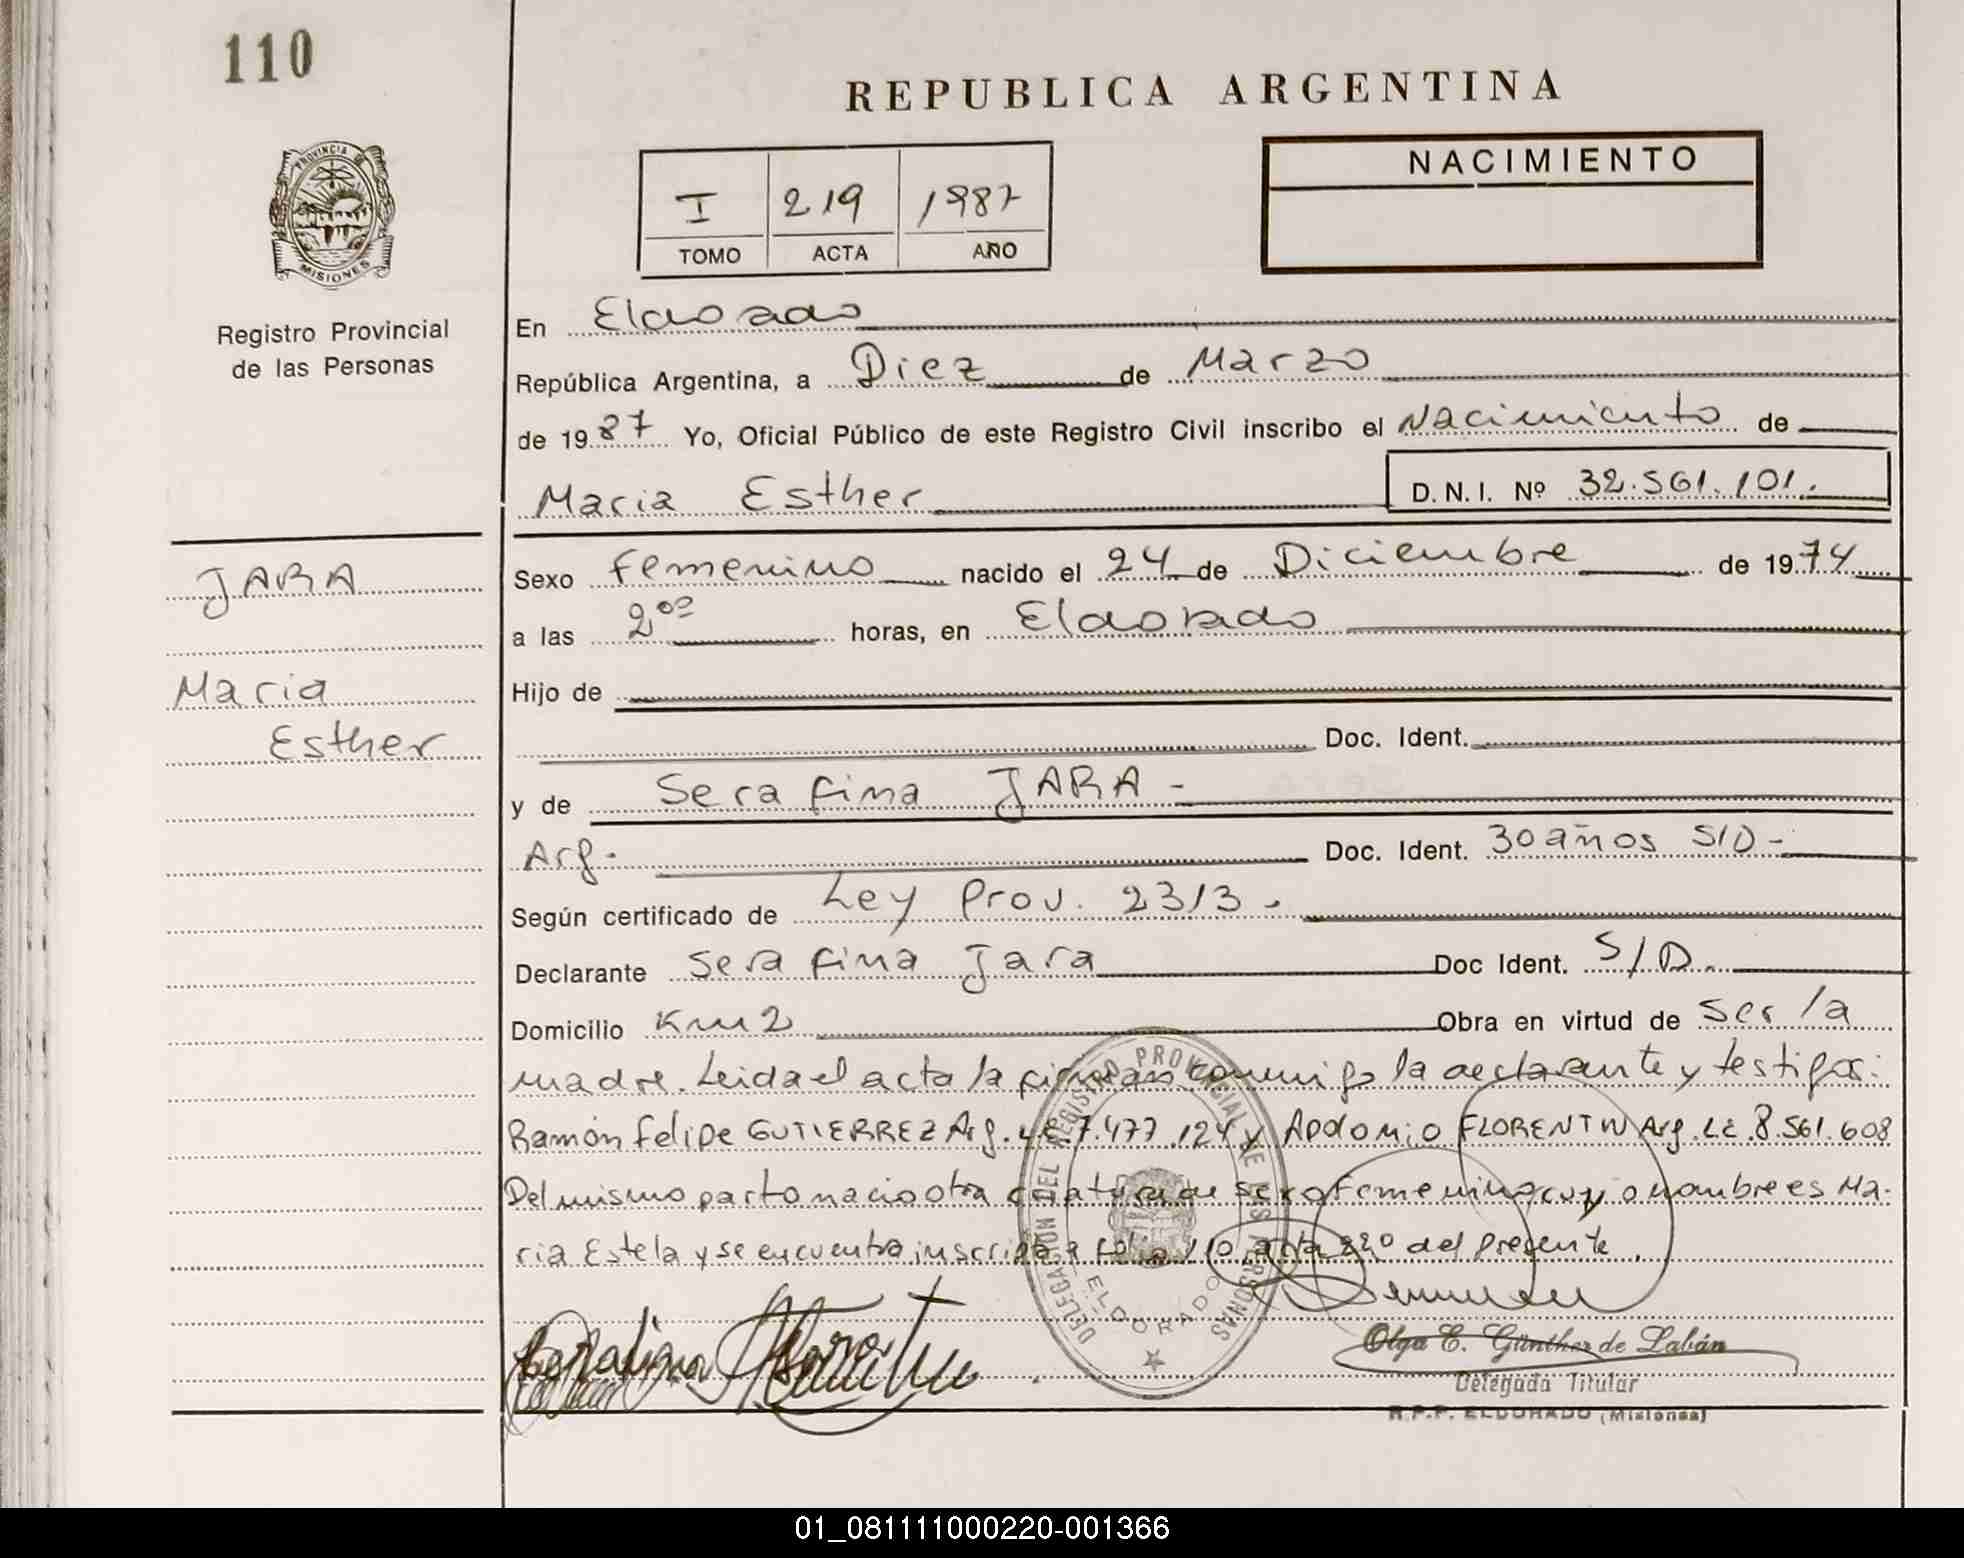 110
REPUBLICA ARGENTINA
PROVINCIA DE
MISIONES
Registro Provincial
de las Personas
I 219 1987
TOMO ACTA AÑO
NACIMIENTO
En Eldorado
República Argentina, a Diez de Marzo
de 1987 Yo, Oficial Público de este Registro Civil inscribo el Nacimiento de
Maria Esther D.N.I. Nº 32.561.101.
JARA
Maria
Esther
Sexo Femenino nacido el 24 de Diciembre de 1974
a las 2⁰⁰ horas, en Eldorado
Hijo de
Doc. Ident.
y de Serafina JARA -
Arg. Doc. Ident. 30 años S/D -
Según certificado de Ley Prov. 2313.
Declarante Serafina Jara Doc Ident. S/D.
Domicilio Km 2 Obra en virtud de ser la
madre. Leida el acta la firman conmigo la declarante y testigos:
Ramón Felipe GUTIERREZ Arg. LE. 7.477.124 y Apolomio FLORENTIN Arg. LE 8.561.608
Del mismo parto nacio otra criatura de sexo Femenino cuyo nombre es Ma-
ria Estela y se encuentra inscripta a folio 110 acta 220 del presente.
DELEGACION DEL REGISTRO PROVINCIAL DE LAS PERSONAS
ELDORADO
Serafina Jara
Olga E. Günther de Labán
Delegada Titular
R.P.P. ELDORADO (Misiones)
01_081111000220-001366